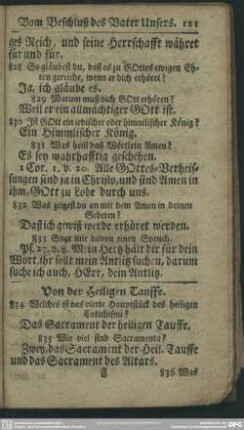 Vom Beschluß des Vater Unsers. 121
ges Reich, und seine Herrschafft währet
für und für.
828 So gläubest du, daß es zu GOttes ewigen Eh-
ren gereiche, wenn er dich erhöret?
Ja, ich gläube es.
829 Warum muß dich GOtt erhören?
Weil er ein allmächtiger GOtt ist.
830 Ist GOtt ein irdischer oder himmlischer König?
Ein Himmlischer König.
831 Was heist das Wörtlein Amen?
Es sey wahrhafftig geschehen.
2 Cor. 1. v. 20. Alle GOttes-Verheis-
sungen sind ja in Christo, und sind Amen in
ihm, GOtt zu Lobe durch uns.
832 Was zeigest du an mit dem Amen in deinen
Gebeten?
Daß ich gewiß werde erhöret werden.
833 Sage mir davon einen Spruch.
Ps. 27. v. 8. Mein Hertz hält dir für dein
Wort, ihr sollt mein Antlitz suchen, darum
suche ich auch, HErr, dein Antlitz.
Von der Heiligen Tauffe.
834 Welches ist das vierte Hauptstück des heiligen
Catechismi?
Das Sacrament der heiligen Tauffe.
835 Wie viel sind Sacramenta?
Zwey, das Sacrament der Heil. Tauffe
und das Sacrament des Altars.
836 Was